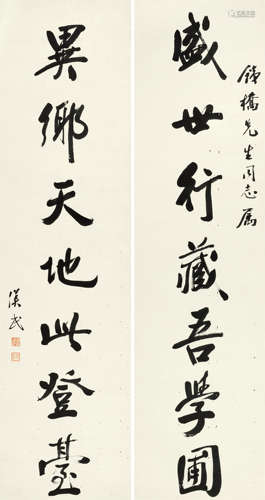 鐵橋先生同志属
盛世行藏吾學圃
異鄉天地此登臺
漢民